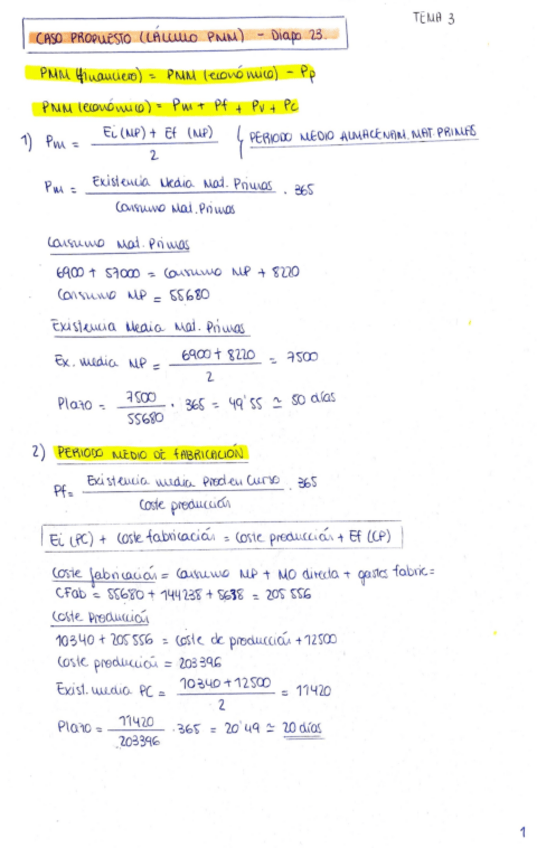 TEMA 3
CASO PROPUESTO (CÁLCULO PMM) - Diapo 23
PMM (financiero) = PMM (económico) - Pp
PMM (económico) = Pm + Pf + Pv + Pc
1) Pm = Ei (MP) + Ef (MP) / 2 { PERIODO MEDIO ALMACENAM. MAT. PRIMAS
Pm = Existencia Media Mat. Primas / Consumo Mat. Primas · 365
Consumo Mat. Primas
6900 + 57000 = Consumo MP + 8220
Consumo MP = 55680
Existencia Media Mat. Primas
Ex. media MP = 6900 + 8220 / 2 = 7500
Plazo = 7500 / 55680 · 365 = 49'55 ≃ 50 días
2) PERIODO MEDIO DE FABRICACIÓN
Pf = Existencia media Prod en Curso / Coste producción · 365
Ei (PC) + Coste fabricación = Coste producción + Ef (CP)
Coste fabricación = Consumo MP + MO directa + gastos fabric =
CFab = 55680 + 144238 + 5638 = 205 556
Coste Producción
10340 + 205 556 = Coste de producción + 12500
Coste producción = 203396
Exist. media PC = 10340 + 12500 / 2 = 11420
Plazo = 11420 / 203396 · 365 = 20'49 ≃ 20 días
1